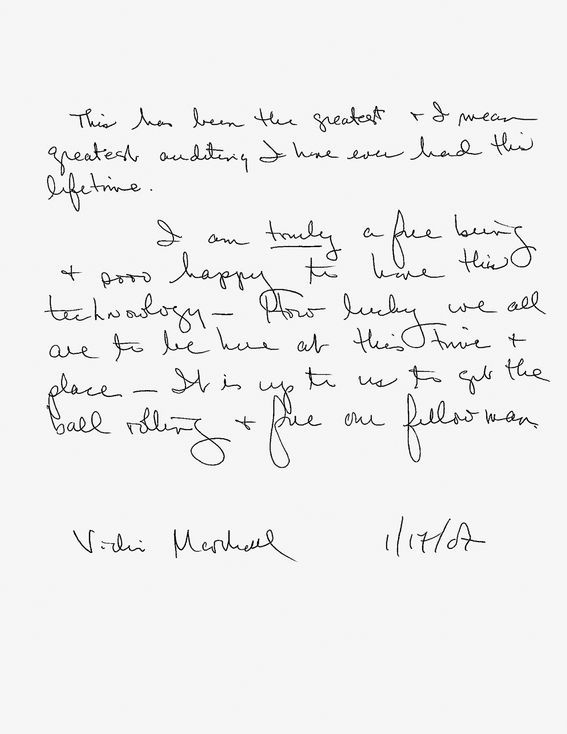 This has been the greatest + I mean
greatest auditing I have ever had this
lifetime.
I am truly a free being
+ sooo happy to have this
technology — How lucky we all
are to be here at this time +
place — It is up to us to get the
ball rolling + free our fellow man.
Vicki Marshall 1/17/07